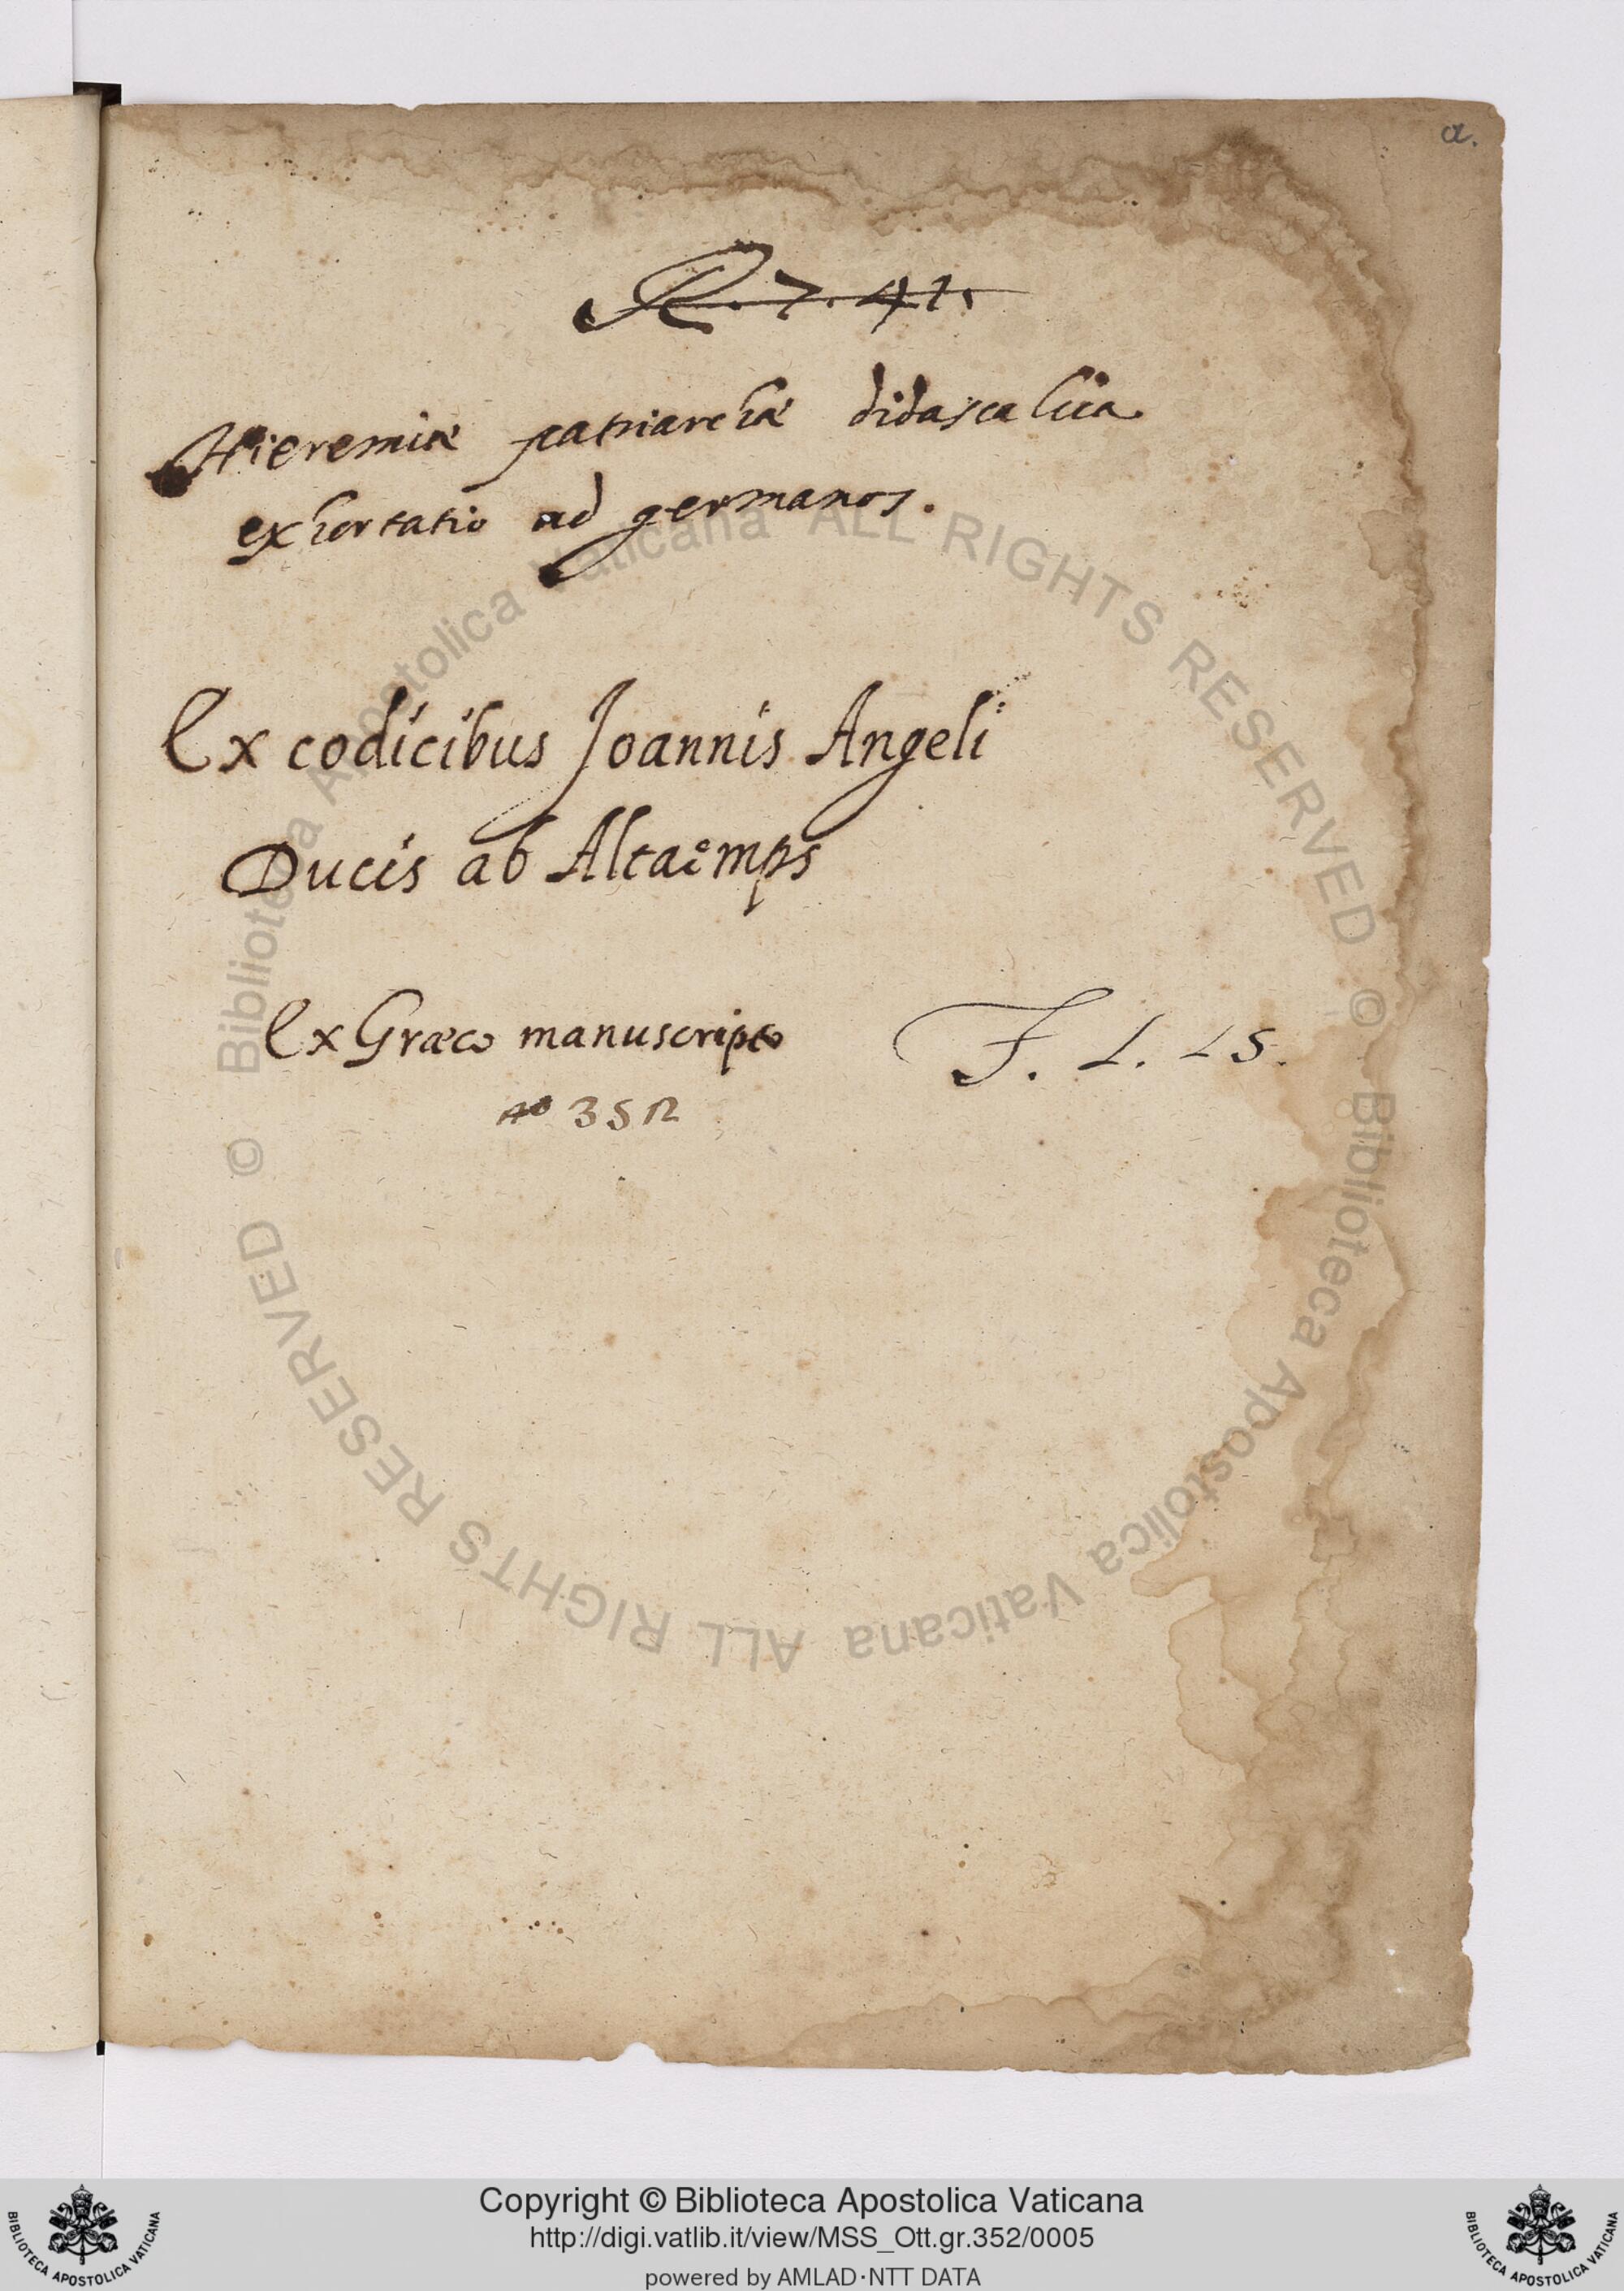 a.
R. 7. 41.
Hieremiæ patriarchæ didascalica
exhortatio ad germanos.
Ex codicibus Joannis Angeli
Ducis ab Altaemps
Ex Græco manuscripto
F. 1. 15.
352
© Biblioteca Apostolica Vaticana ALL RIGHTS RESERVED © Biblioteca Apostolica Vaticana ALL RIGHTS RESERVED
Copyright © Biblioteca Apostolica Vaticana
http://digi.vatlib.it/view/MSS_Ott.gr.352/0005
powered by AMLAD·NTT DATA
BIBLIOTECA APOSTOLICA VATICANA
BIBLIOTECA APOSTOLICA VATICANA